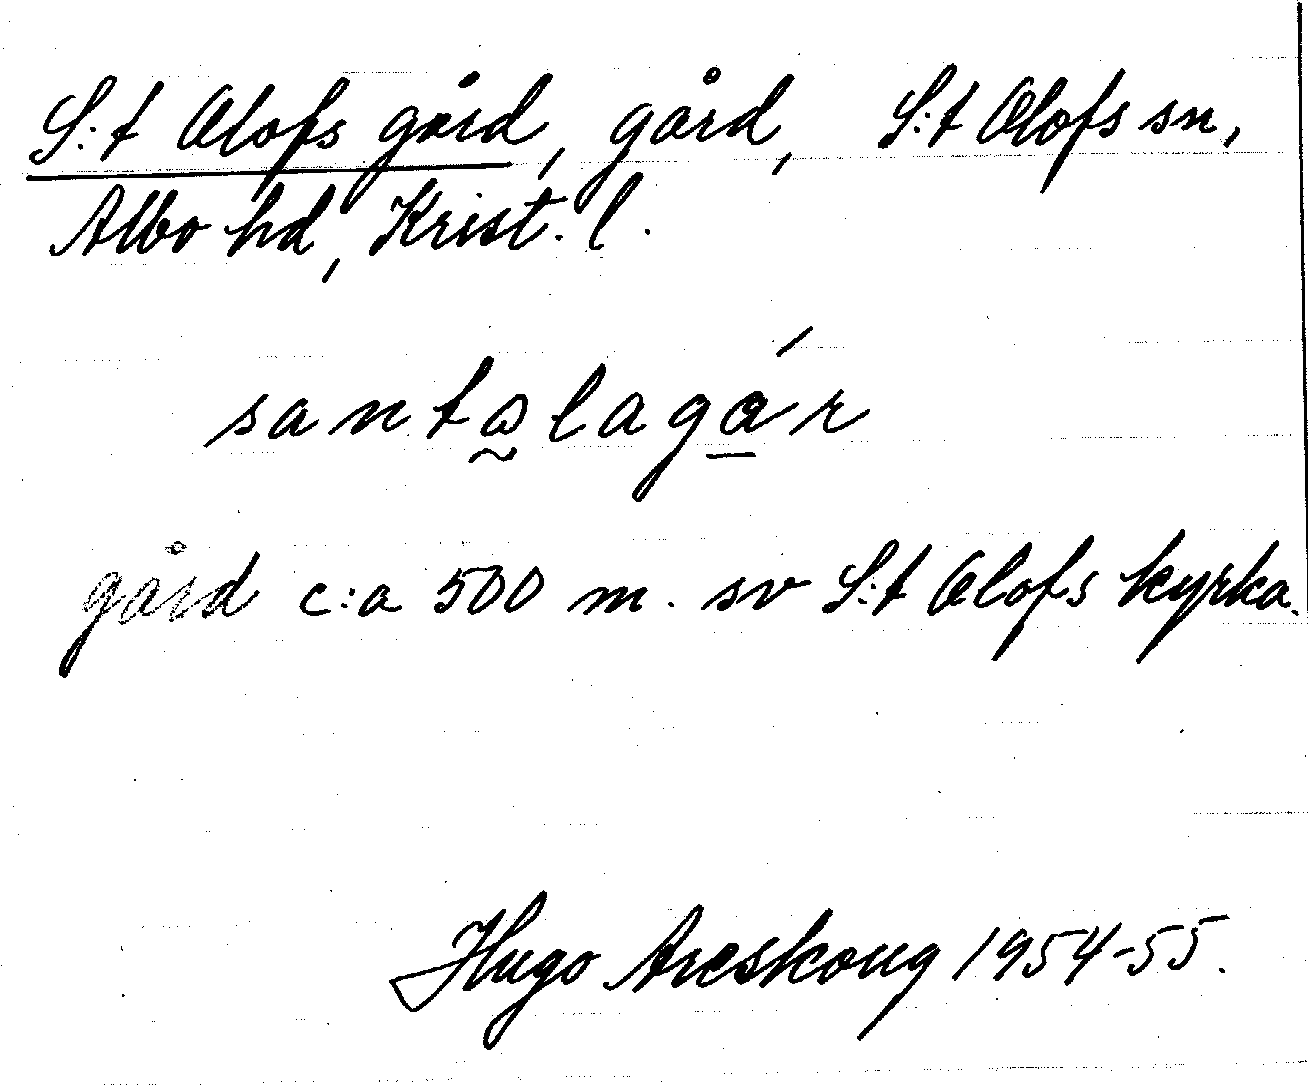 S:t Olofs gård, gård, S:t Olofs sn,
Albo hd, Krist. l.
santa̰laga̲´r
gård c:a 500 m. sv S:t Olofs kyrka.
Hugo Areskoug 1954-55.